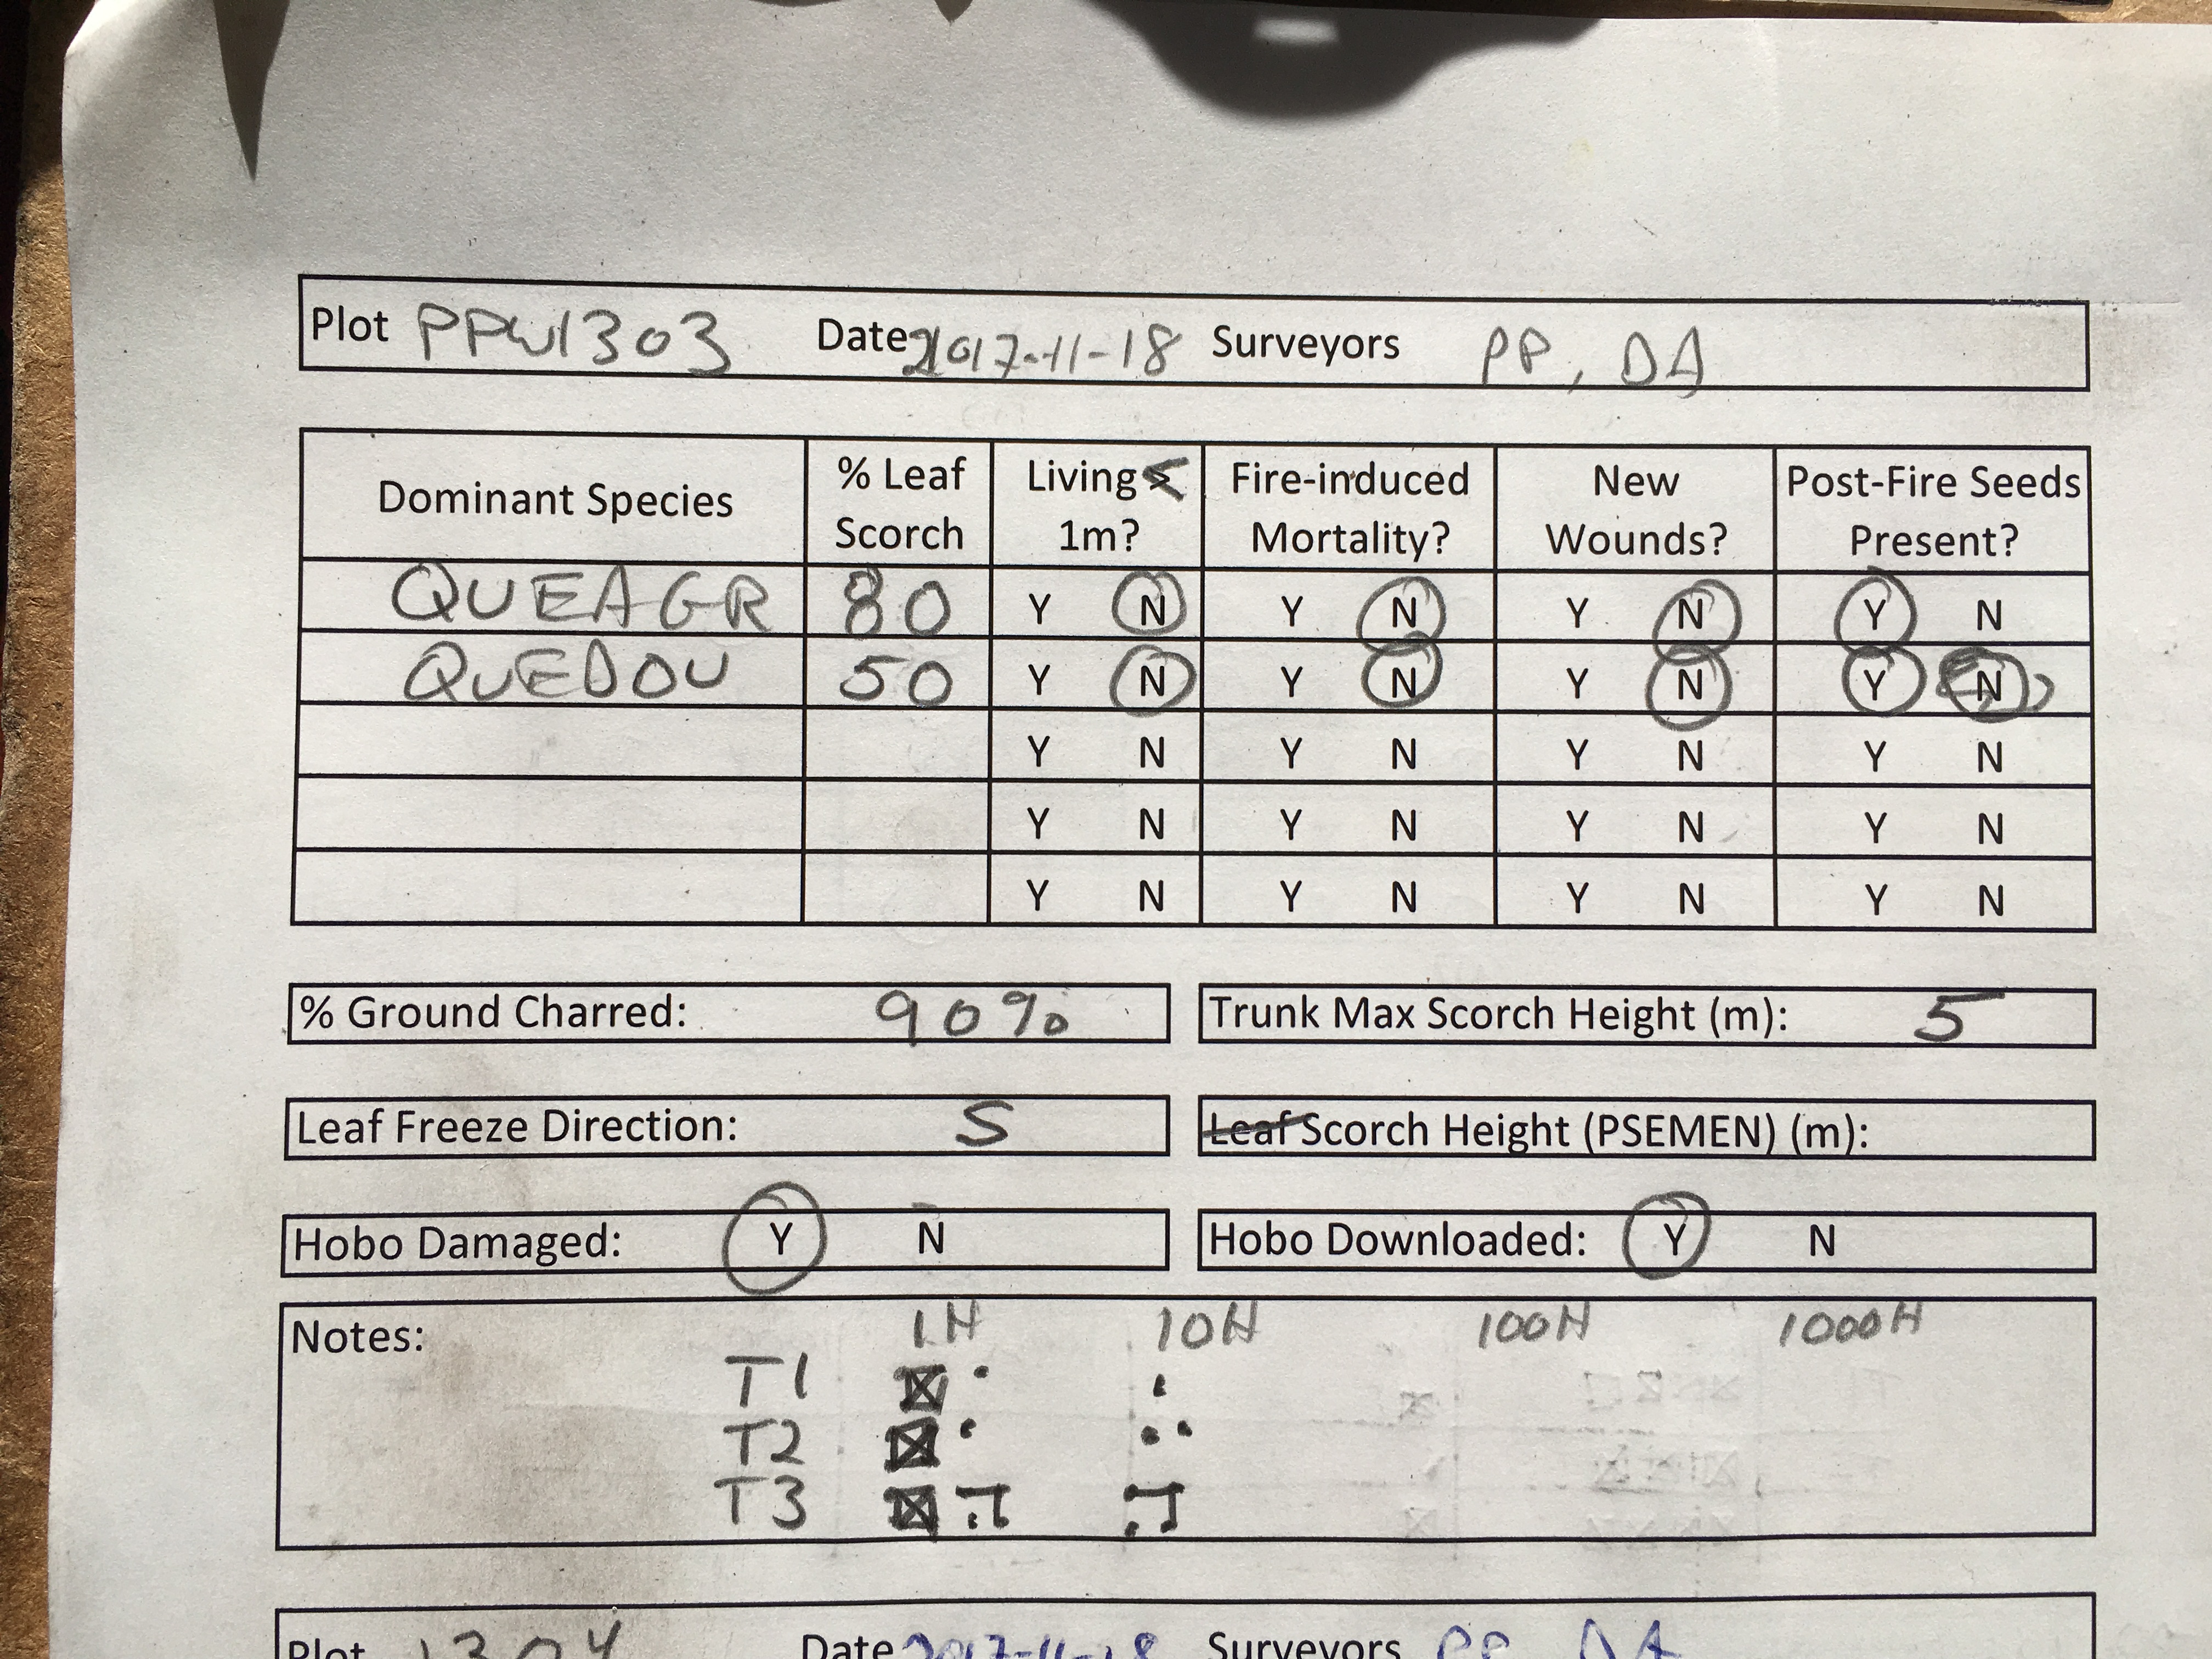 Plot PPW1303 Date 2017-11-18 Surveyors PP, DA
Dominant Species % Leaf Scorch Living < 1m? Fire-induced Mortality? New Wounds? Post-Fire Seeds Present?
QUEAGR 80 Y N Y N Y N Y N
QUEDOU 50 Y N Y N Y N Y N
Y N Y N Y N Y N
Y N Y N Y N Y N
Y N Y N Y N Y N
% Ground Charred: 90% Trunk Max Scorch Height (m): 5
Leaf Freeze Direction: S Leaf Scorch Height (PSEMEN) (m):
Hobo Damaged: Y N Hobo Downloaded: Y N
Notes: 1H 10H 100H 1000H
T1
T2
T3
Plot 1304 Date 2017-11-18 Surveyors PP DA